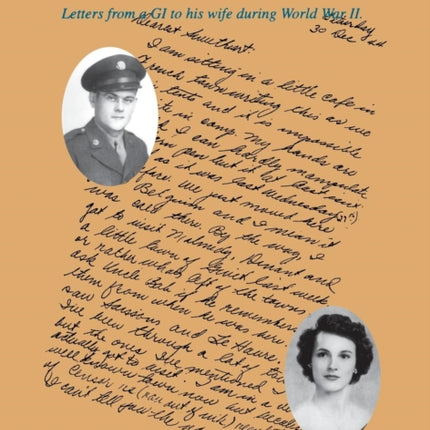 Letters from a GI to his wife during World War II.
Saturday
30 Dec 44
Dearest Sweetheart:
I am setting in a little cafe in
French town writing this as we
in tents and it is impossible
to in camp. My hands are
I can hardly manipulate
pen but it at least
as it was last Wednesday
We just moved here
Belgium and I mean it
was cold there. By the way, I
got to visit Malmedy, Dinant and
a little town of last week
or rather what's left of the towns.
ask Uncle if he remembers
them from when he was here.
saw Soissons and Le Havre.
I've been through a lot of
but the ones I've mentioned I
actually got to visit. I am in a
well known town now but
of Censor is (now out of ink)
I can't tell you the